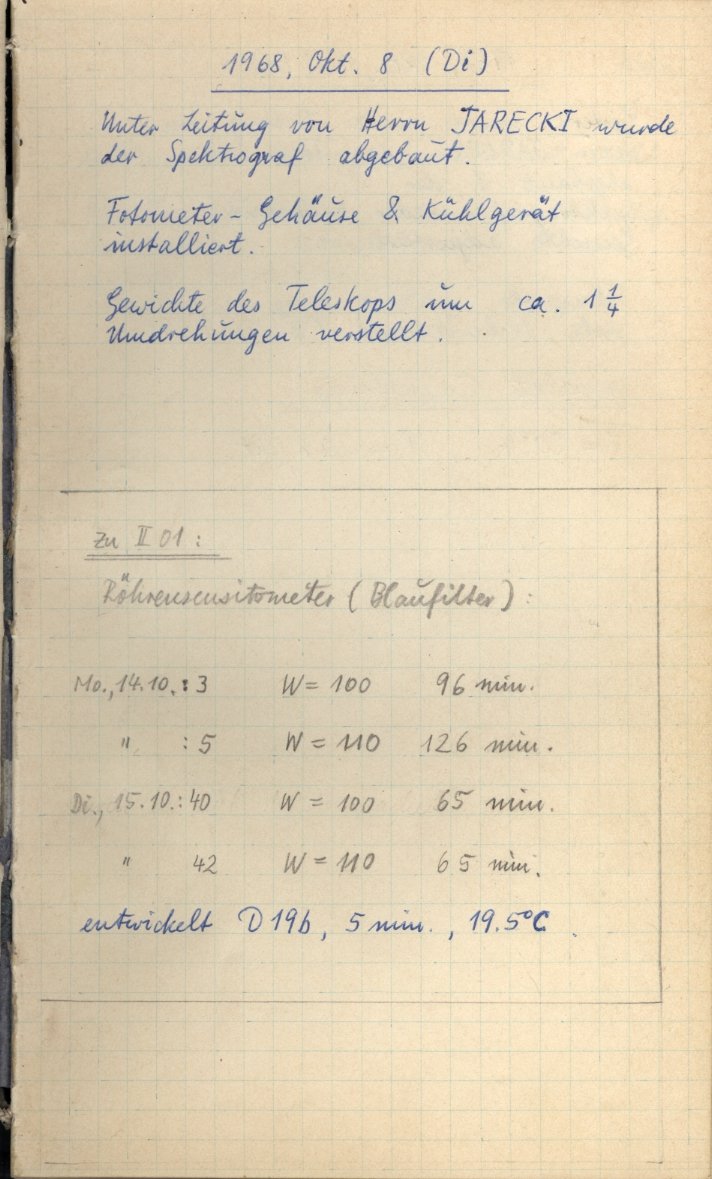 1968, Okt. 8 (Di)
Unter Leitung von Herrn JARECKI wurde
der Spektrograf abgebaut.
Fotometer-Gehäuse & Kühlgerät
installiert.
Gewichte des Teleskops um ca. 1 1/4
Umdrehungen verstellt.
Zu II 01:
Röhrensensitometer (Blaufilter):
Mo., 14.10.: 3 W = 100 96 min.
" : 5 W = 110 126 min.
Di., 15.10.: 40 W = 100 65 min.
" 42 W = 110 65 min.
entwickelt D 19b, 5 min., 19.5°C.